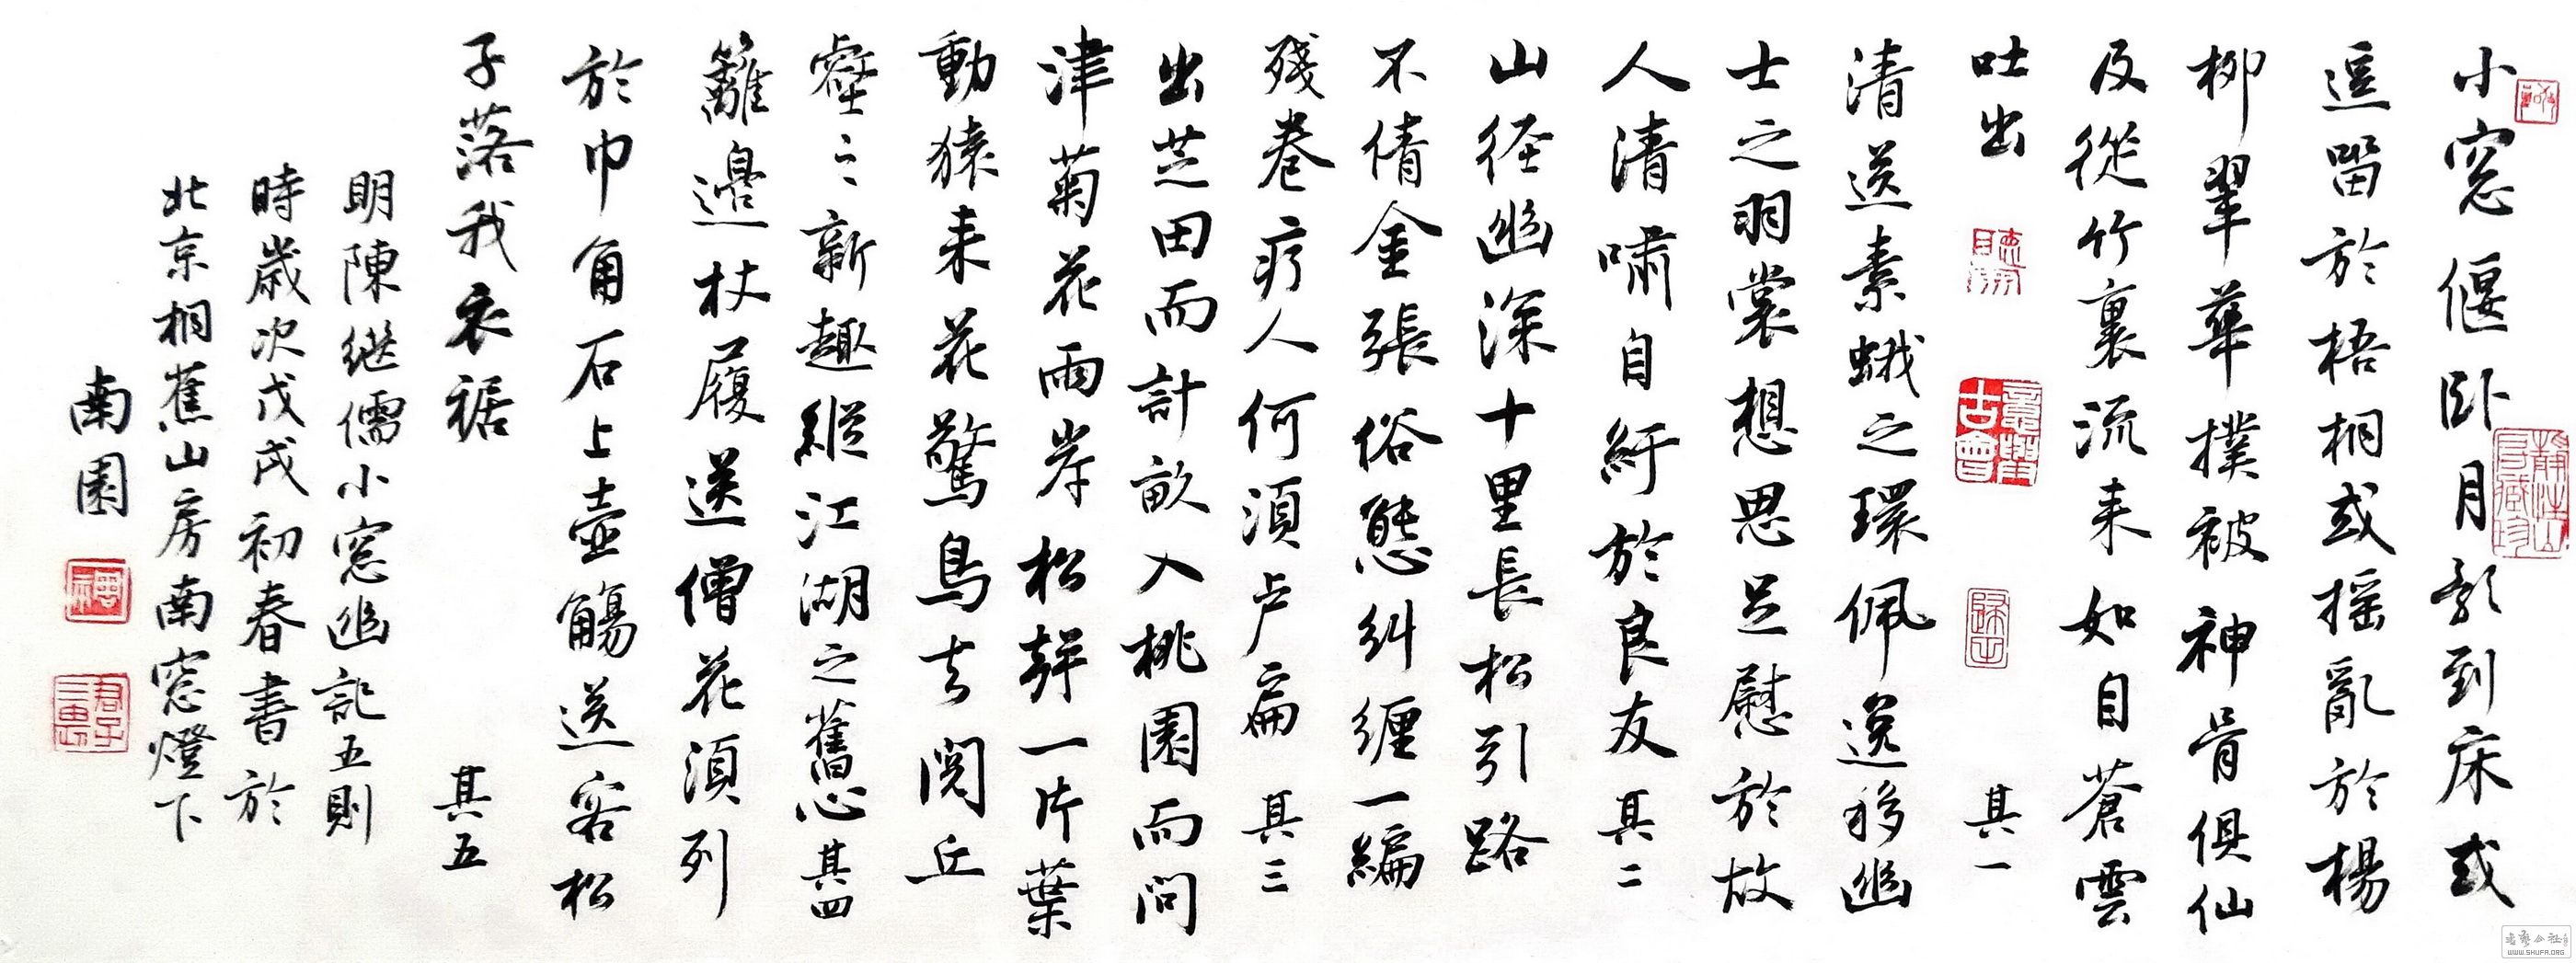 小窓偃臥月影到床或
逗留於梧桐或摇亂於楊
柳翠華撲被神骨俱仙
及從竹裏流来如自蒼雲
吐出 其一
清送素蛾之環佩逸移幽
士之羽裳想思足慰於故
人清嘯自紆於良友 其二
山径幽深十里長松引路
不倩金張俗態糾纏一編
殘卷疗人何須卢扁 其三
出芝田而計畝入桃園而問
津菊花兩岸松聲一片葉
動猿来花驚鳥去閱丘
壑之新趣縱江湖之舊心 其四
籬邊杖履送僧花須列
於巾角石上壺觴送客松
子落我衣裾 其五
明陳继儒小窓幽記五則
時歲次戊戌初春書於
北京桐蕉山房南窓燈下
南園
WWW.SHUFA.ORG